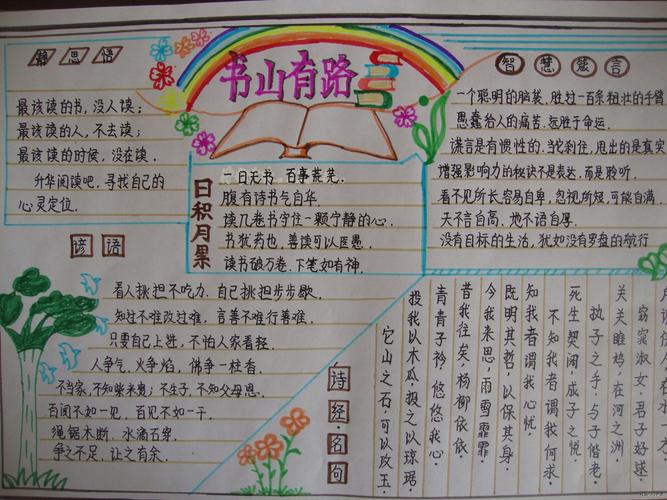 静思语
最该读的书,没人读;
最该读的人,不去读;
最该读的时候,没在读.
升华阅读吧,寻找自己的
心灵定位.
书山有路
智慧箴言
一个聪明的脑袋,胜过一百条粗壮的手臂
愚蠢给人的痛苦,远胜于命运.
谎言是有惯性的.当你刹住,甩出的是真实
增强影响力的秘诀不是表达,而是聆听.
看不见所长,容易自卑,忽视所短,可能自满.
天不言自高,地不语自厚.
没有目标的生活,犹如没有罗盘的航行
日积月累
一日无书 百事荒芜.
腹有诗书气自华.
读几卷书守住一颗宁静的心.
书犹药也,善读可以医愚.
读书破万卷.下笔如有神.
谚语
看人挑担不吃力.自己挑担步步歇.
知过不难改过难,言善不难行善难.
只要自己上进,不怕人家看轻.
人争气,火争焰,佛争一柱香.
不当家,不知柴米贵;不生子,不知父母恩.
百闻不如一见,百见不如一干.
绳锯木断,水滴石穿.
争之不足,让之有余.
诗经·名句
关关雎鸠·在河之洲·
窈窕淑女·君子好逑·
执子之手·与子偕老·
死生契阔·成子之悦·
不知我者谓我何求·
知我者谓我心忧·
既明其哲·以保其身·
今我来思·雨雪霏霏·
昔我往矣·杨柳依依·
青青子衿·悠悠我心·
投我以木瓜·报之以琼琚·
它山之石·可以攻玉·